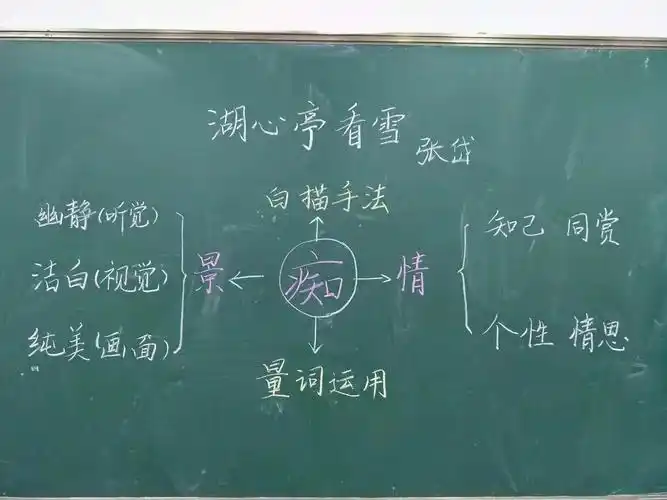 湖心亭看雪
张岱
白描手法
幽静(听觉)
洁白(视觉)
纯美(画面)
景
痴
情
知己 同赏
个性 情思
量词运用